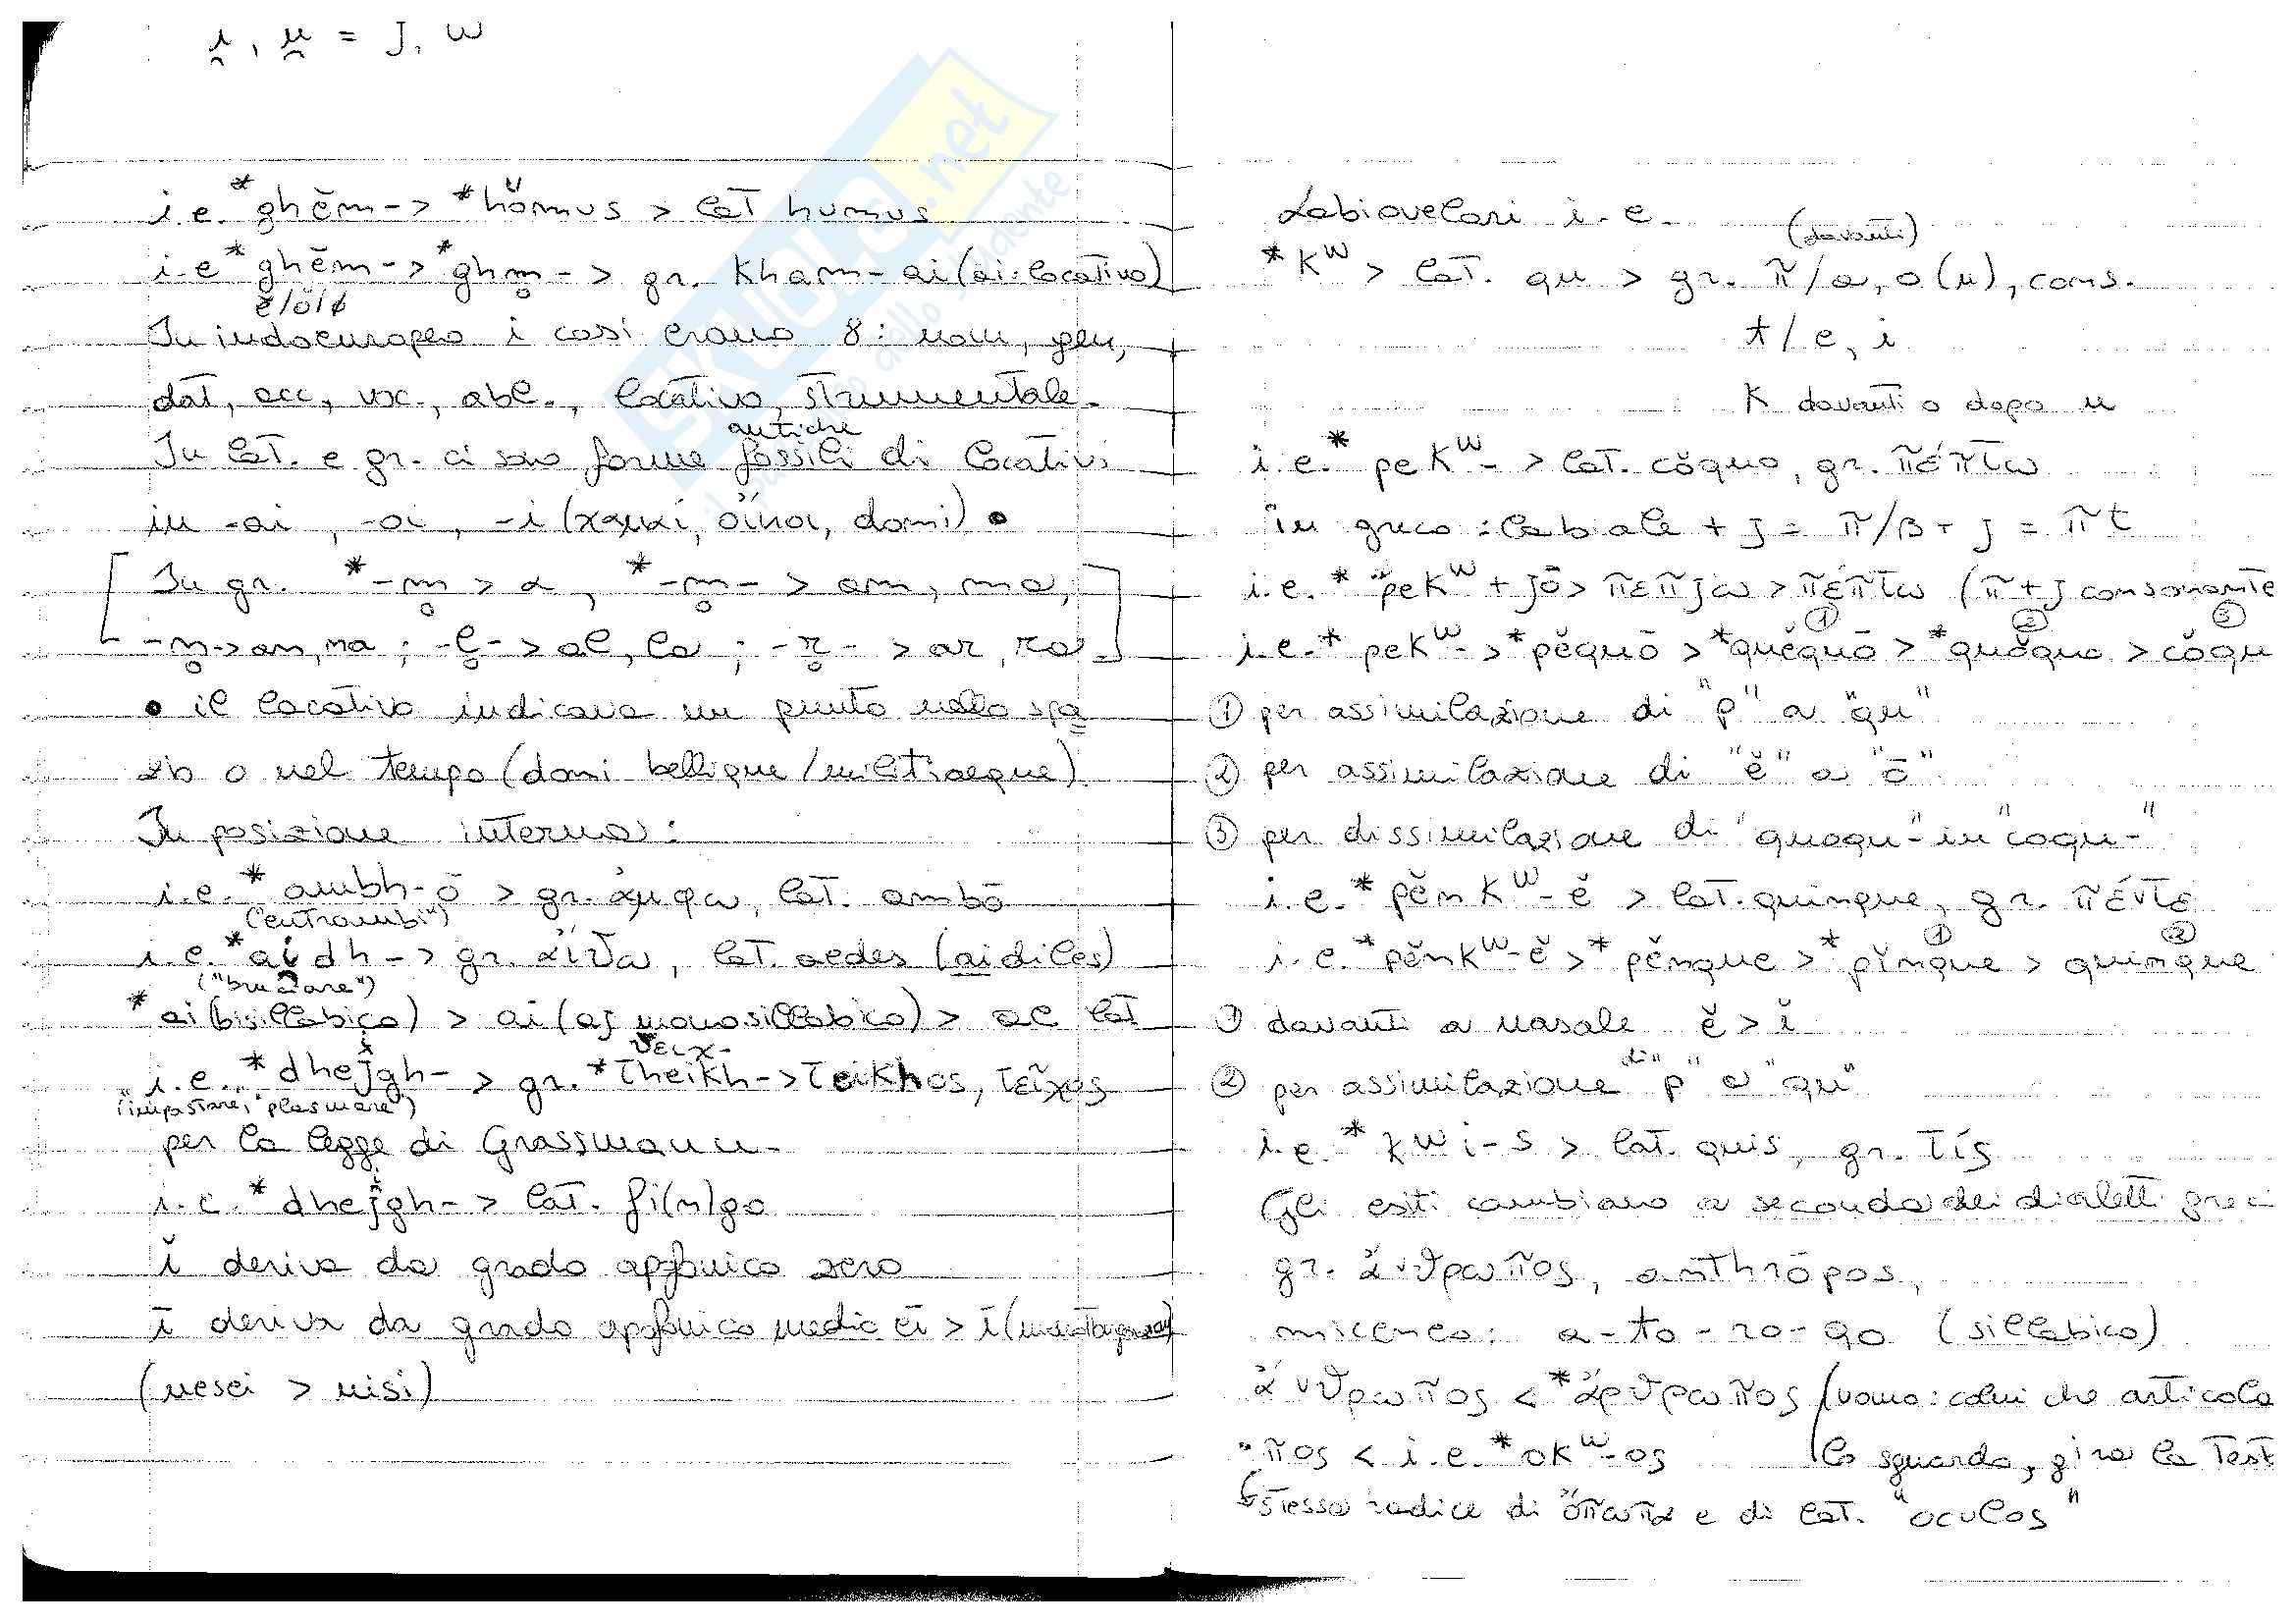 i̯, u̯ = j, w
i.e. *ghĕm- > *hŏmus > lat humus
i.e *ghĕm- > *ghm̥- > gr. kham-ai (ai: locativo)
ĕ/ŏ/ø
In indoeuropeo i casi erano 8: nom, gen,
dat, acc, voc., abl., locativo, strumentale.
antiche
In lat. e gr. ci sono forme fossili di locativi
in -ai, -oi, -i (χαμαί, οἴκοι, domi) •
[In gr. *-m̥ > α, *-m̥- > am, ma,
-n̥- > an, na ; -l̥- > al, la ; -r̥- > ar, ra.]
• il locativo indicava un punto nello spa
zio o nel tempo (domi bellique/militiaeque)
In posizione interna:
i.e. *ambh-ō > gr. ἄμφω, lat. ambō
("entrambi")
i.e. *aidh- > gr. αἴθω, lat. aedes (aidiles)
("bruciare")
*ai (bisillabico) > ai (aj monosillabico) > ae lat
θειχ-
i.e. *dhejgh- > gr. *theikh- > teikhos, τεῖχος
("impastare", "plasmare")
per la legge di Grassmann.
i.e. *dhejgh- > lat. fi(n)go
ĭ deriva da grado apofonico zero
ī deriva da grado apofonico medio ei > ī
(nesei > nisi)
Labiovelari i.e.
(davanti)
*kʷ > lat. qu > gr. π/a, o (u), cons.
t/e, i
K davanti o dopo u
i.e. *pekʷ- > lat. cŏquo, gr. πέπτω
in greco: labiale + j = π/β + j = πt
i.e. *pekʷ + jō > πεπjω > πέπτω (π + j consonante
① ② ③
i.e. *pekʷ- > *pĕquō > *quĕquō > *quŏquo > cŏqu
① per assimilazione di "p" a "qu"
② per assimilazione di "ĕ" a "ō"
③ per dissimilazione di "quoqu-" in "coqu-"
i.e. *pĕnkʷ-ĕ > lat. quinque, gr. πέντε
① ②
i.e. *pĕnkʷ-ĕ > *pĕnque > *pĭnque > quinque
① davanti a nasale ĕ > ĭ
② per assimilazione di "p" a "qu"
i.e. *kʷi-s > lat. quis, gr. τίς
Gli esiti cambiano a seconda dei dialetti greci
gr. ἄνθρωπος, anthrōpos,
miceneo: a-to-ro-qo (sillabico)
ἄνθρωπος < *ἄρθρωπος (uomo: colui che articola
-πος < i.e. *okʷ-os lo sguardo, gira la test
stessa radice di ὄπωπα e di lat. "oculos"